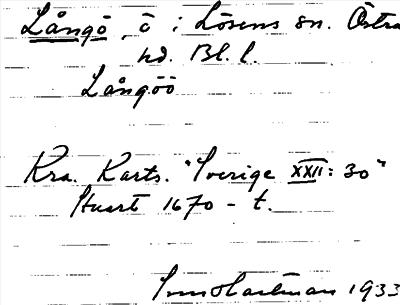 Långö, ö i Lösens sn. Östra
hd. Bl. l.
Långöö
Kra. Karts. "Sverige XXII: 30"
Stuart 1670 - t.
Sven Hartman 1933